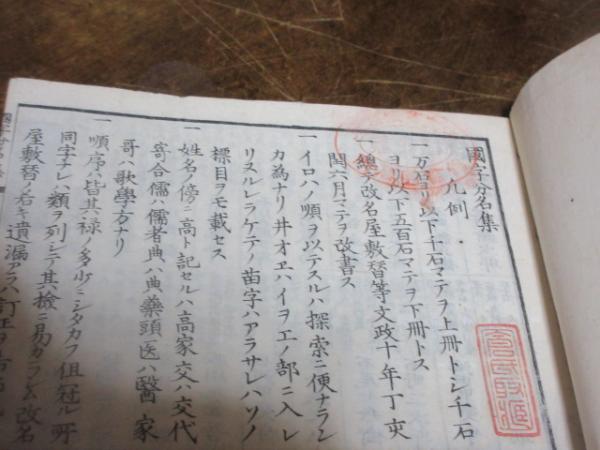 國字分名集
凡例
一 万石ヨリ以下千石マテヲ上冊トシ千石
ヨリ以下五百石マテヲ下冊トス
一 總テ改名屋敷替等文政十年丁亥
閏六月マテヲ改書ス
一 イロハノ順ヲ以テスルハ探索ニ便ナラン
カ為ナリ井オエハイヲエノ部ニ入レ
リヌルレラケテノ苗字ハアラサレハソノ
標目ヲモ載セス
一 姓名ノ傍ニ高ト記セルハ高家交ハ交代
寄合儒ハ儒者典ハ典藥頭医ハ醫家
哥ハ歌學方ナリ
一 順序ハ皆其禄ノ多少ニシタカフ但冠ル所
同字ナレハ類ヲ列シテ其檢ニ易カラシム改名
屋敷替ノ右キ遺漏アラハ訂正ヲ